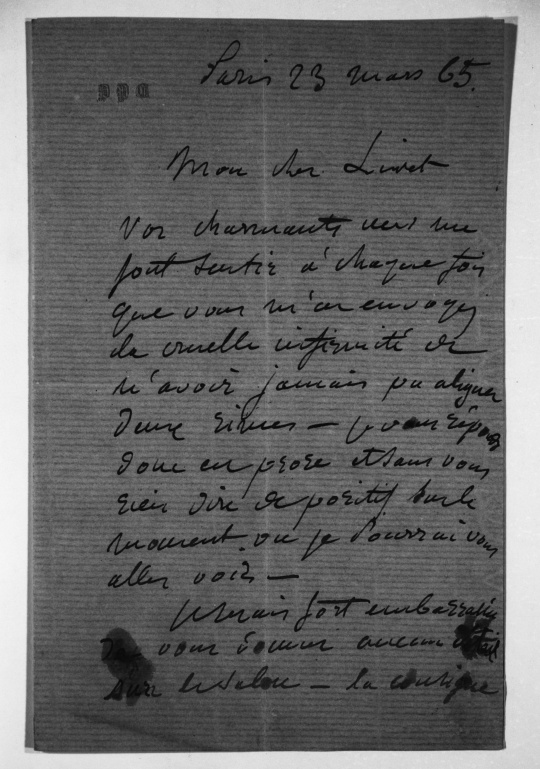 Paris 23 mars 65.
Mon cher Livet
Vos charmants vers me
font sentir à chaque fois
que vous m'en envoyez
la cruelle infirmité de
n'avoir jamais pu aligner
deux rimes — je vous réponds
donc en prose et sans vous
rien dire de positif sur le
moment où je pourrai vous
aller voir —
je serais fort embarrassé
de vous donner aucun détail
sur le salon — la consigne